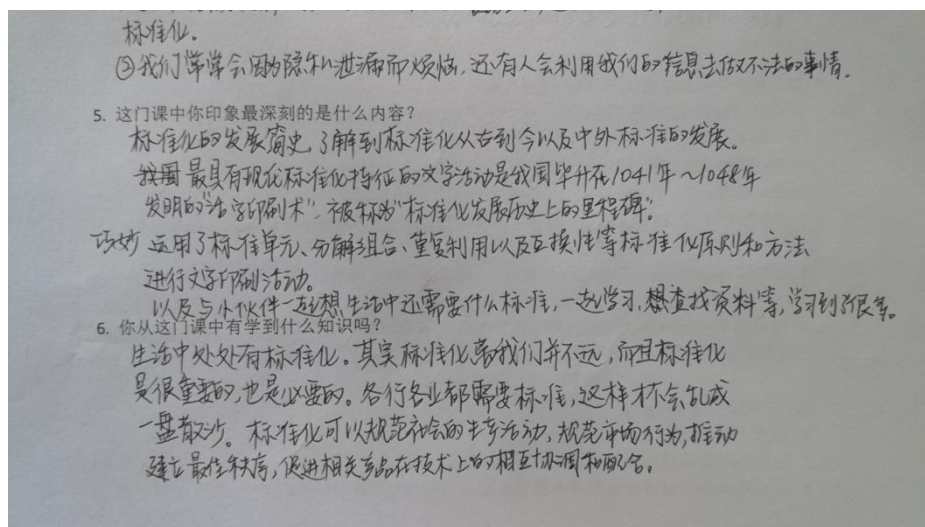 标准化。
②我们常常会因为隐私泄漏而烦恼,还有人会利用我们的信息去做不法的事情。
5. 这门课中你印象最深刻的是什么内容?
标准化的发展简史,了解到标准化从古到今以及中外标准的发展。
最具有现代标准化特征的文字活动是我国毕升在1041年~1048年
发明的"活字印刷术",被称为"标准化发展历史上的里程碑"。
巧妙运用了标准单元、分解组合、重复利用以及互换性等标准化原则和方法
进行文字印刷活动。
以及与小伙伴一起想生活中还需要什么标准,一起学习,想查找资料等,学习到了很多。
6. 你从这门课中有学到什么知识吗?
生活中处处有标准化。其实标准化离我们并不远,而且标准化
是很重要的,也是必要的。各行各业都需要标准,这样才不会乱成
一盘散沙。标准化可以规范社会的生产活动,规范市场行为,推动
建立最佳秩序,促进相关产品在技术上的相互协调和配合。